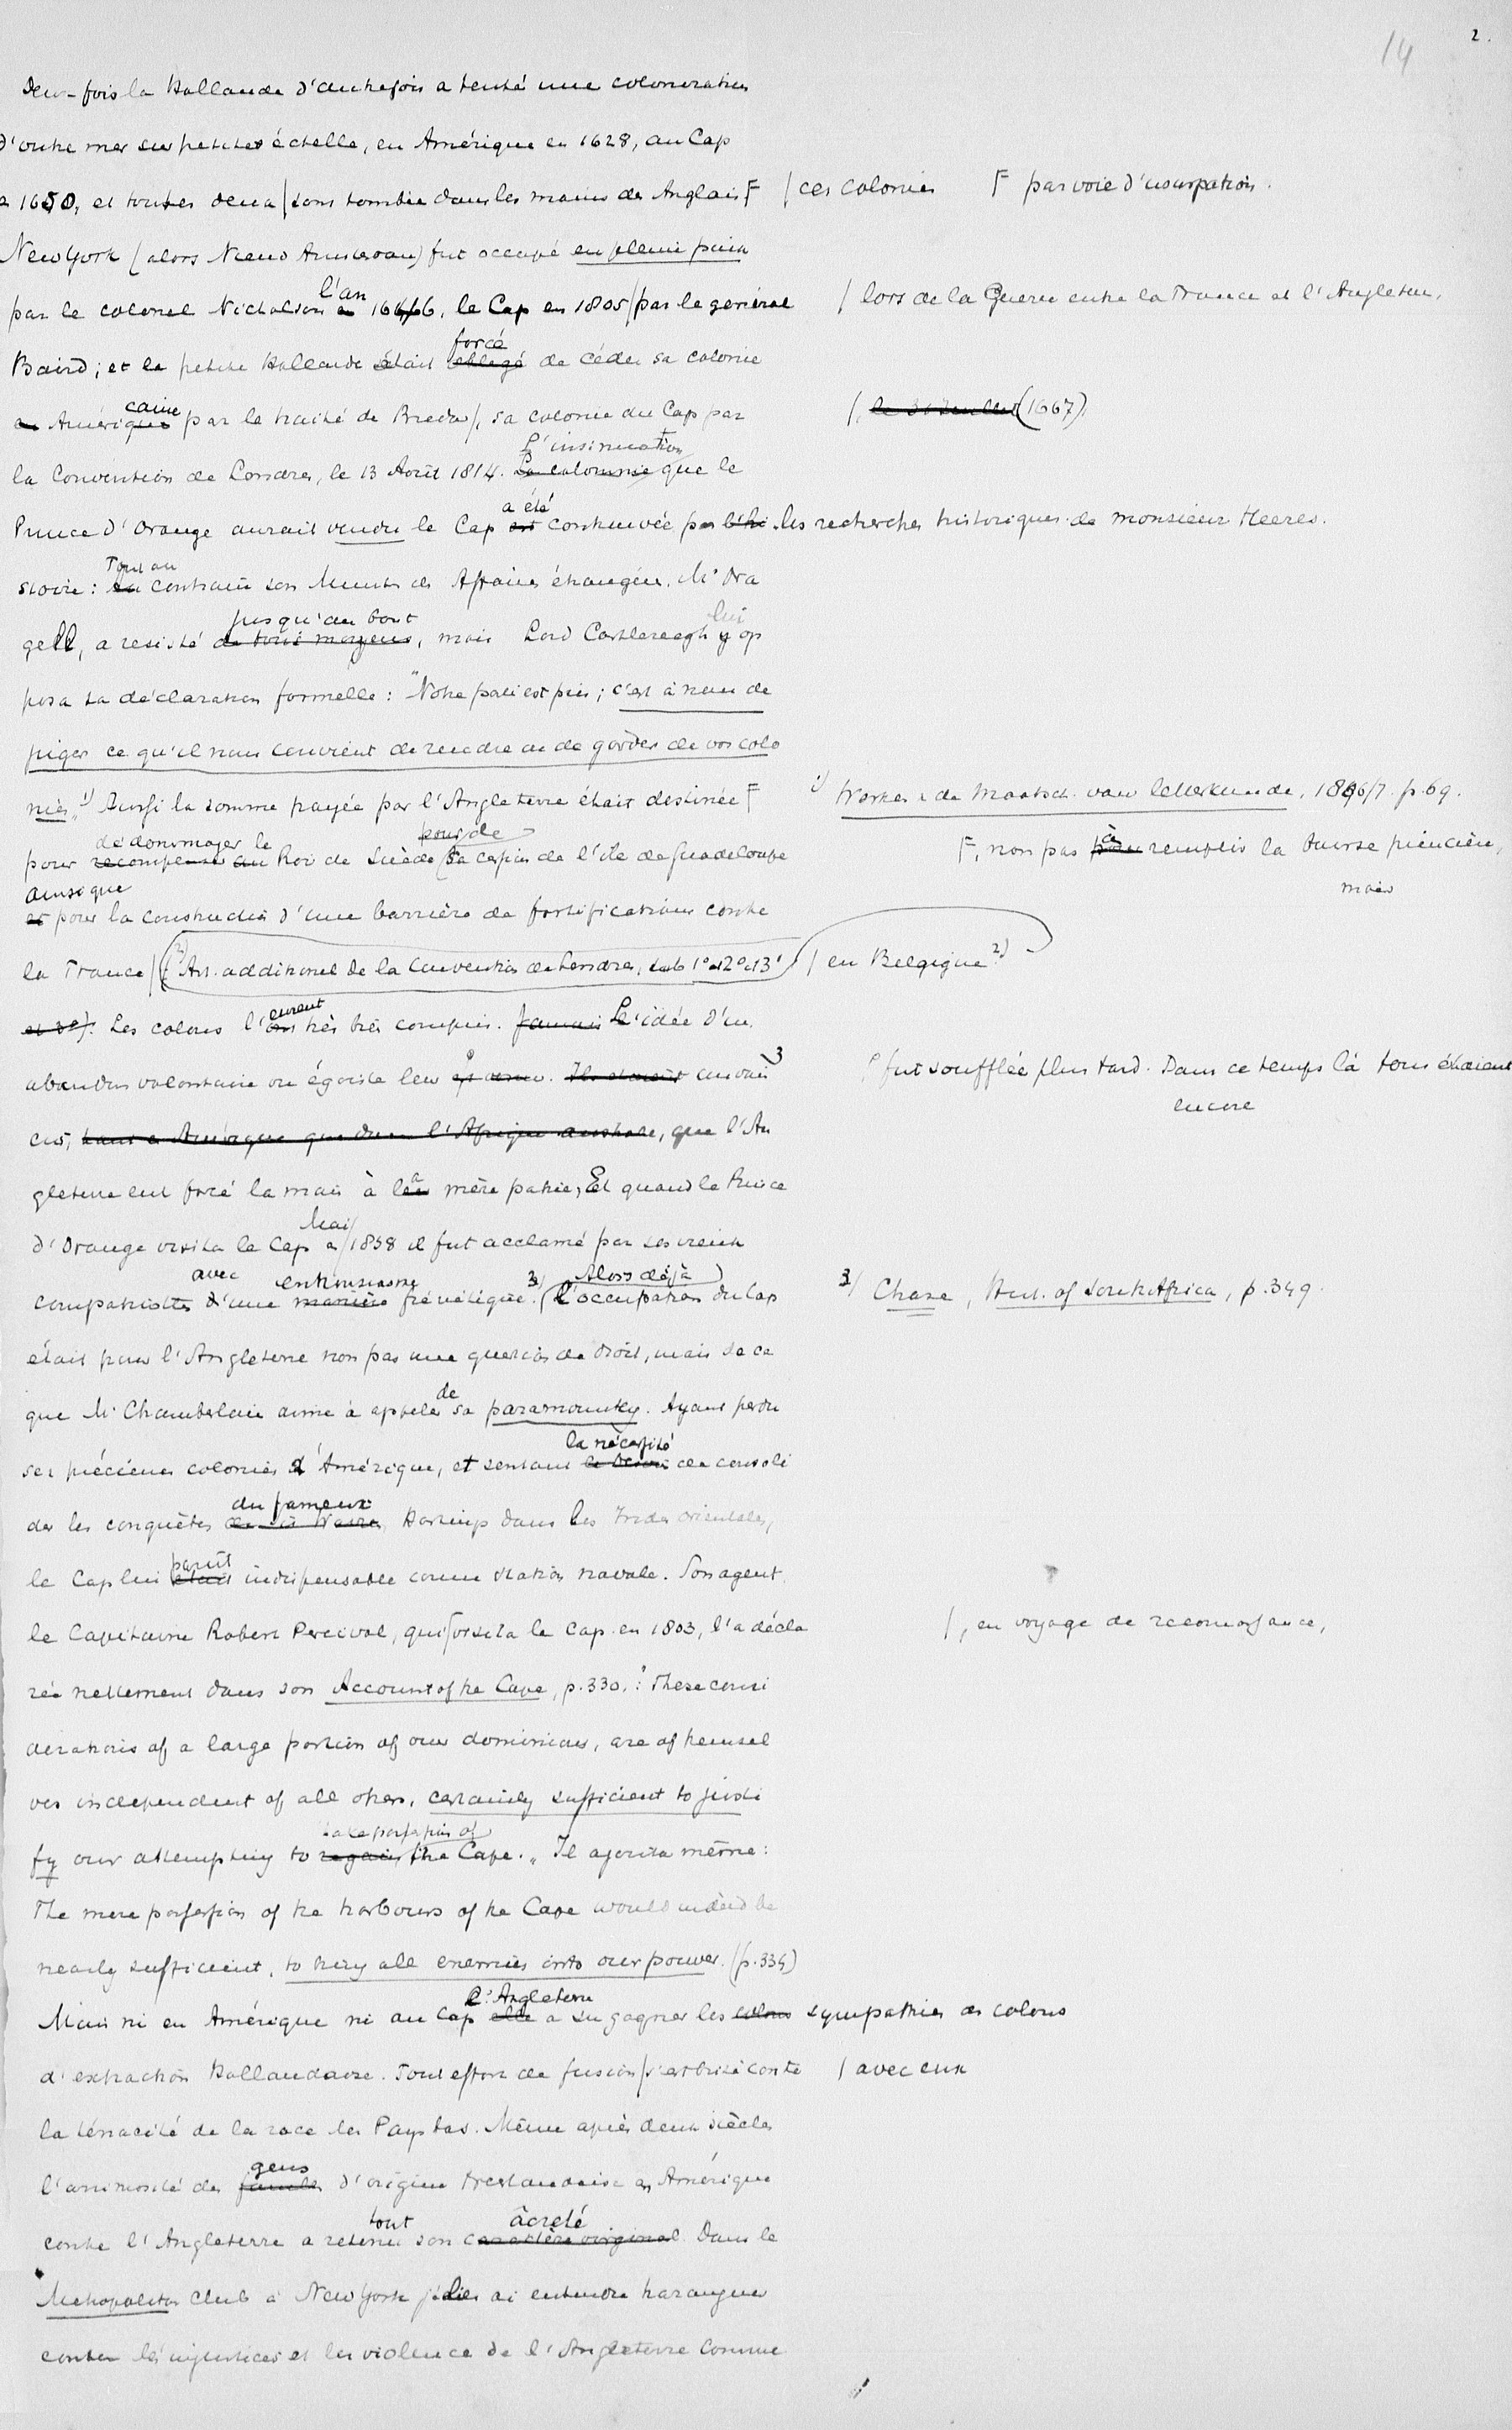 14
2.
Deux fois la Hollande d'autrefois a tenté une colonisation
d'outre mer sur petite échelle, en Amérique en 1628, au Cap
1650, et toutes deux / sont tombées dans les mains des Anglais F / ces colonies F par voie d'usurpation.
New York (alors Nieuw Amsterdam) fut occupé en pleine paix
par le colonel Nicholson l'an 1666, le Cap en 1805 / par le général / lors de la Guerre entre la France et l'Angleterre,
Baird; et la petite Hollande était obligé forcé de céder sa colonie
en Américaine par le traité de Breda /, sa colonie du Cap par /, le 31 Juillet (1667).
la Convention de Londres, le 13 Août 1814. La calomnie L'insinuation que le
Prince d'Orange aurait vendu le Cap est a été controuvée par l'hi les recherches historiques de monsieur Heeres.
stoire: au Tout au contraire son Ministre des Affaires étrangères, Mr Na
gell, a resisté de tous moyens jusqu'au bout, mais Lord Castlereagh y lui op
posa sa déclaration formelle: "Notre parti est pris; c'est à nous de
juger ce qu'il nous convient de rendre ou de garder de vos colo
nies„ 1) Aussi la somme payée par l'Angleterre était destinée F 1) Werken de Maatsch. van letterkunde, 1896/7. p. 69.
pour recompenser au dédommager le Roi de Suède pour de sa cession de l'île de Guadeloupe F, non pas pour à remplir la bourse princière, mais
et ainsi que pour la construction d'une barrière de fortifications contre
la France / (2) Art. additionel de la Convention de Londres, sub 1° et 2° et 3° / en Belgique 2)
et 3°). Les colons l'ont eurent très bien compris. Jamais L'idée d'un
abandon volontaire ou égoiste leur est venu. Ils étaient convain fut soufflée plus tard. Dans ce temps là tous étaient encore
cus, tant en Amérique que dans l'Afrique australe, que l'An
gleterre eut forcé la main à leur la mère patrie, Et quand le Prince
d'Orange visita le Cap en Mai / 1838 il fut acclamé par ses vieux
compatriotes d'une manière avec enthousiasme frénétique. 3) (Alors déjà) L'occupation du Cap 3) Chase, Hist. of South Africa, p. 349.
était pour l'Angleterre non pas une question de droit, mais de ce
que Mr Chamberlain aime à appeler de sa paramountcy. Ayant perdu
ses précieuses colonies d'Amérique, et sentant le besoin la nécessité de consoli
der les conquêtes de Sir Warren du fameux Hastings dans les Indes orientales,
le Cap lui était parut indispensable comme station navale. Son agent
le Capitaine Robert Percival, qui / visita le Cap en 1803, l'a décla /, en voyage de reconnaissance,
rée nettement dans son Account of the Cape, p. 330.: "These consi
derations of a large portion of our dominions, are of themsel
ves independent of all others, certainly sufficient to justi
fy our attempting to regain take possession of the Cape.„ Il ajouta même:
The mere possession of the harbours of the Cape would indeed be
nearly sufficient, to bring all enemies into our power. (p. 334)
Mais ni en Amérique ni au Cap elle l'Angleterre a su gagner les colons sympathies des colons
d'extraction Hollandaise. Tout effort de fusion / s'est brisé contre / avec eux
la ténacité de la race des Pays bas. Même après deux siècles
l'animosité des familles gens d'origine Neerlandaise en Amérique
contre l'Angleterre a retenu tout son caractère original âcreté. Dans le
Metropolitan Club à New York je les ai entendu haranguer
contre les injustices et les violence de l'Angleterre comme